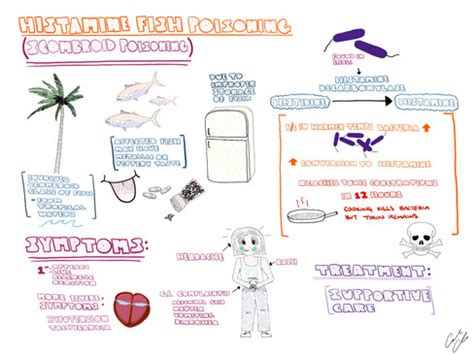 HISTAMINE FISH POISONING
(SCOMBROID POISONING)
DUE TO
IMPROPER
STORAGE
OF FISH
AFFECTED FISH
MAY HAVE
METALLIC OR
PEPPERY TASTE
INVOLVES
SCOMBROID
CLASS OF FISH
- FROM
TROPICAL
WATERS
FOUND IN
HISTAMINE
DECARBOXYLASE
HISTIDINE
HISTAMINE
IN WARMER TEMPS BACTERIA
CONVERSION TO HISTAMINE
TOXIC
IN 12 HOURS
COOKING KILLS BACTERIA
BUT TOXIN REMAINS
SYMPTOMS:
1ST APPEARS
LIKE
ALLERGIC
REACTION
MORE SEVERE
SYMPTOMS:
HYPOTENSION
TACHYCARDIA
HEADACHE
RASH
G.I. COMPLAINTS:
ABDOMINAL PAIN
NAUSEA
VOMITING
DIARRHEA
TREATMENT:
SUPPORTIVE
CARE